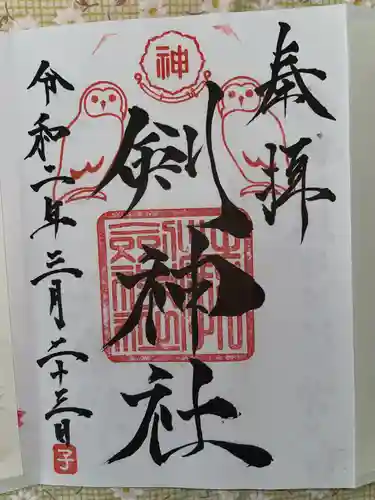 奉拝
神
剣神社
令和二年三月二十三日
子